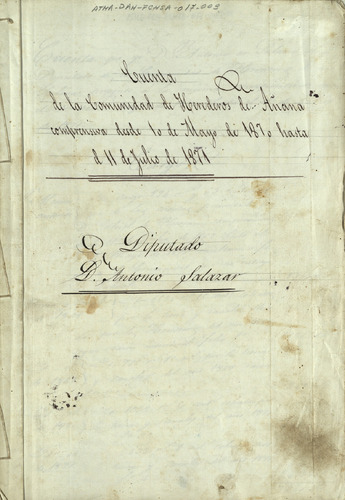 ATHA-DAH-FONSA-017-003
Cuenta
de la Comunidad de Herederos de Añana
comprensiva desde 1º de Mayo de 1870 hasta
el 11 de Julio de 1871
Diputado
D. Antonio Salazar